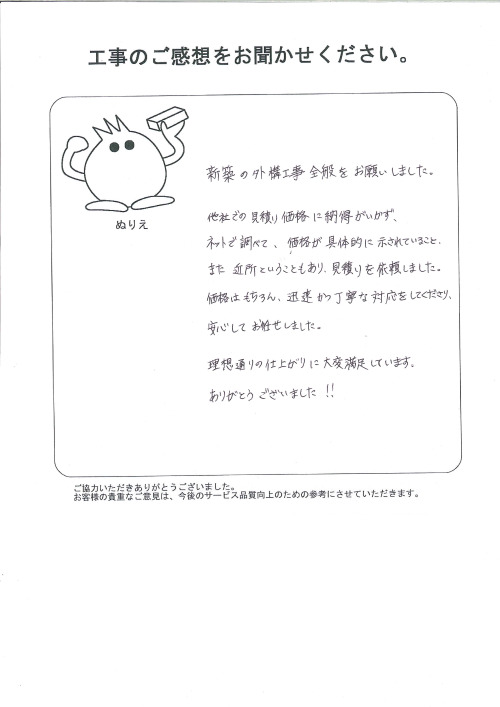 工事のご感想をお聞かせください。
ぬりえ
新築の外構工事全般をお願いしました。
他社での見積り価格に納得がいかず、
ネットで調べて、価格が具体的に示されていること、
また近所ということもあり、見積りを依頼しました。
価格はもちろん、迅速かつ丁寧な対応をしてくださり、
安心してお任せしました。
理想通りの仕上がりに大変満足しています。
ありがとうございました!!
ご協力いただきありがとうございました。
お客様の貴重なご意見は、今後のサービス品質向上のための参考にさせていただきます。